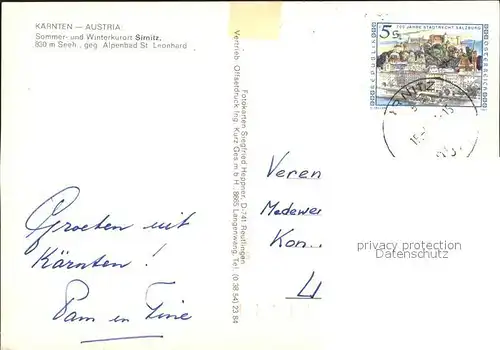 KÄRNTEN — AUSTRIA
Sommer- und Winterkurort Sirnitz,
830 m Seeh., geg. Alpenbad St. Leonhard
Fotokarten Siegfried Heppner, D-741 Reutlingen
Vertrieb: Offsetdruck Ing. Kurz Ges m b H, 8665 Langenwang, Tel. (0 38 54) 23 84
700 JAHRE STADTRECHT SALZBURG
5 S
REPUBLIK
ÖSTERREICH
Veren
Medewer
Kon
privacy protection
Datenschutz
Groeten uit
Kärnten!
Pam en Tine